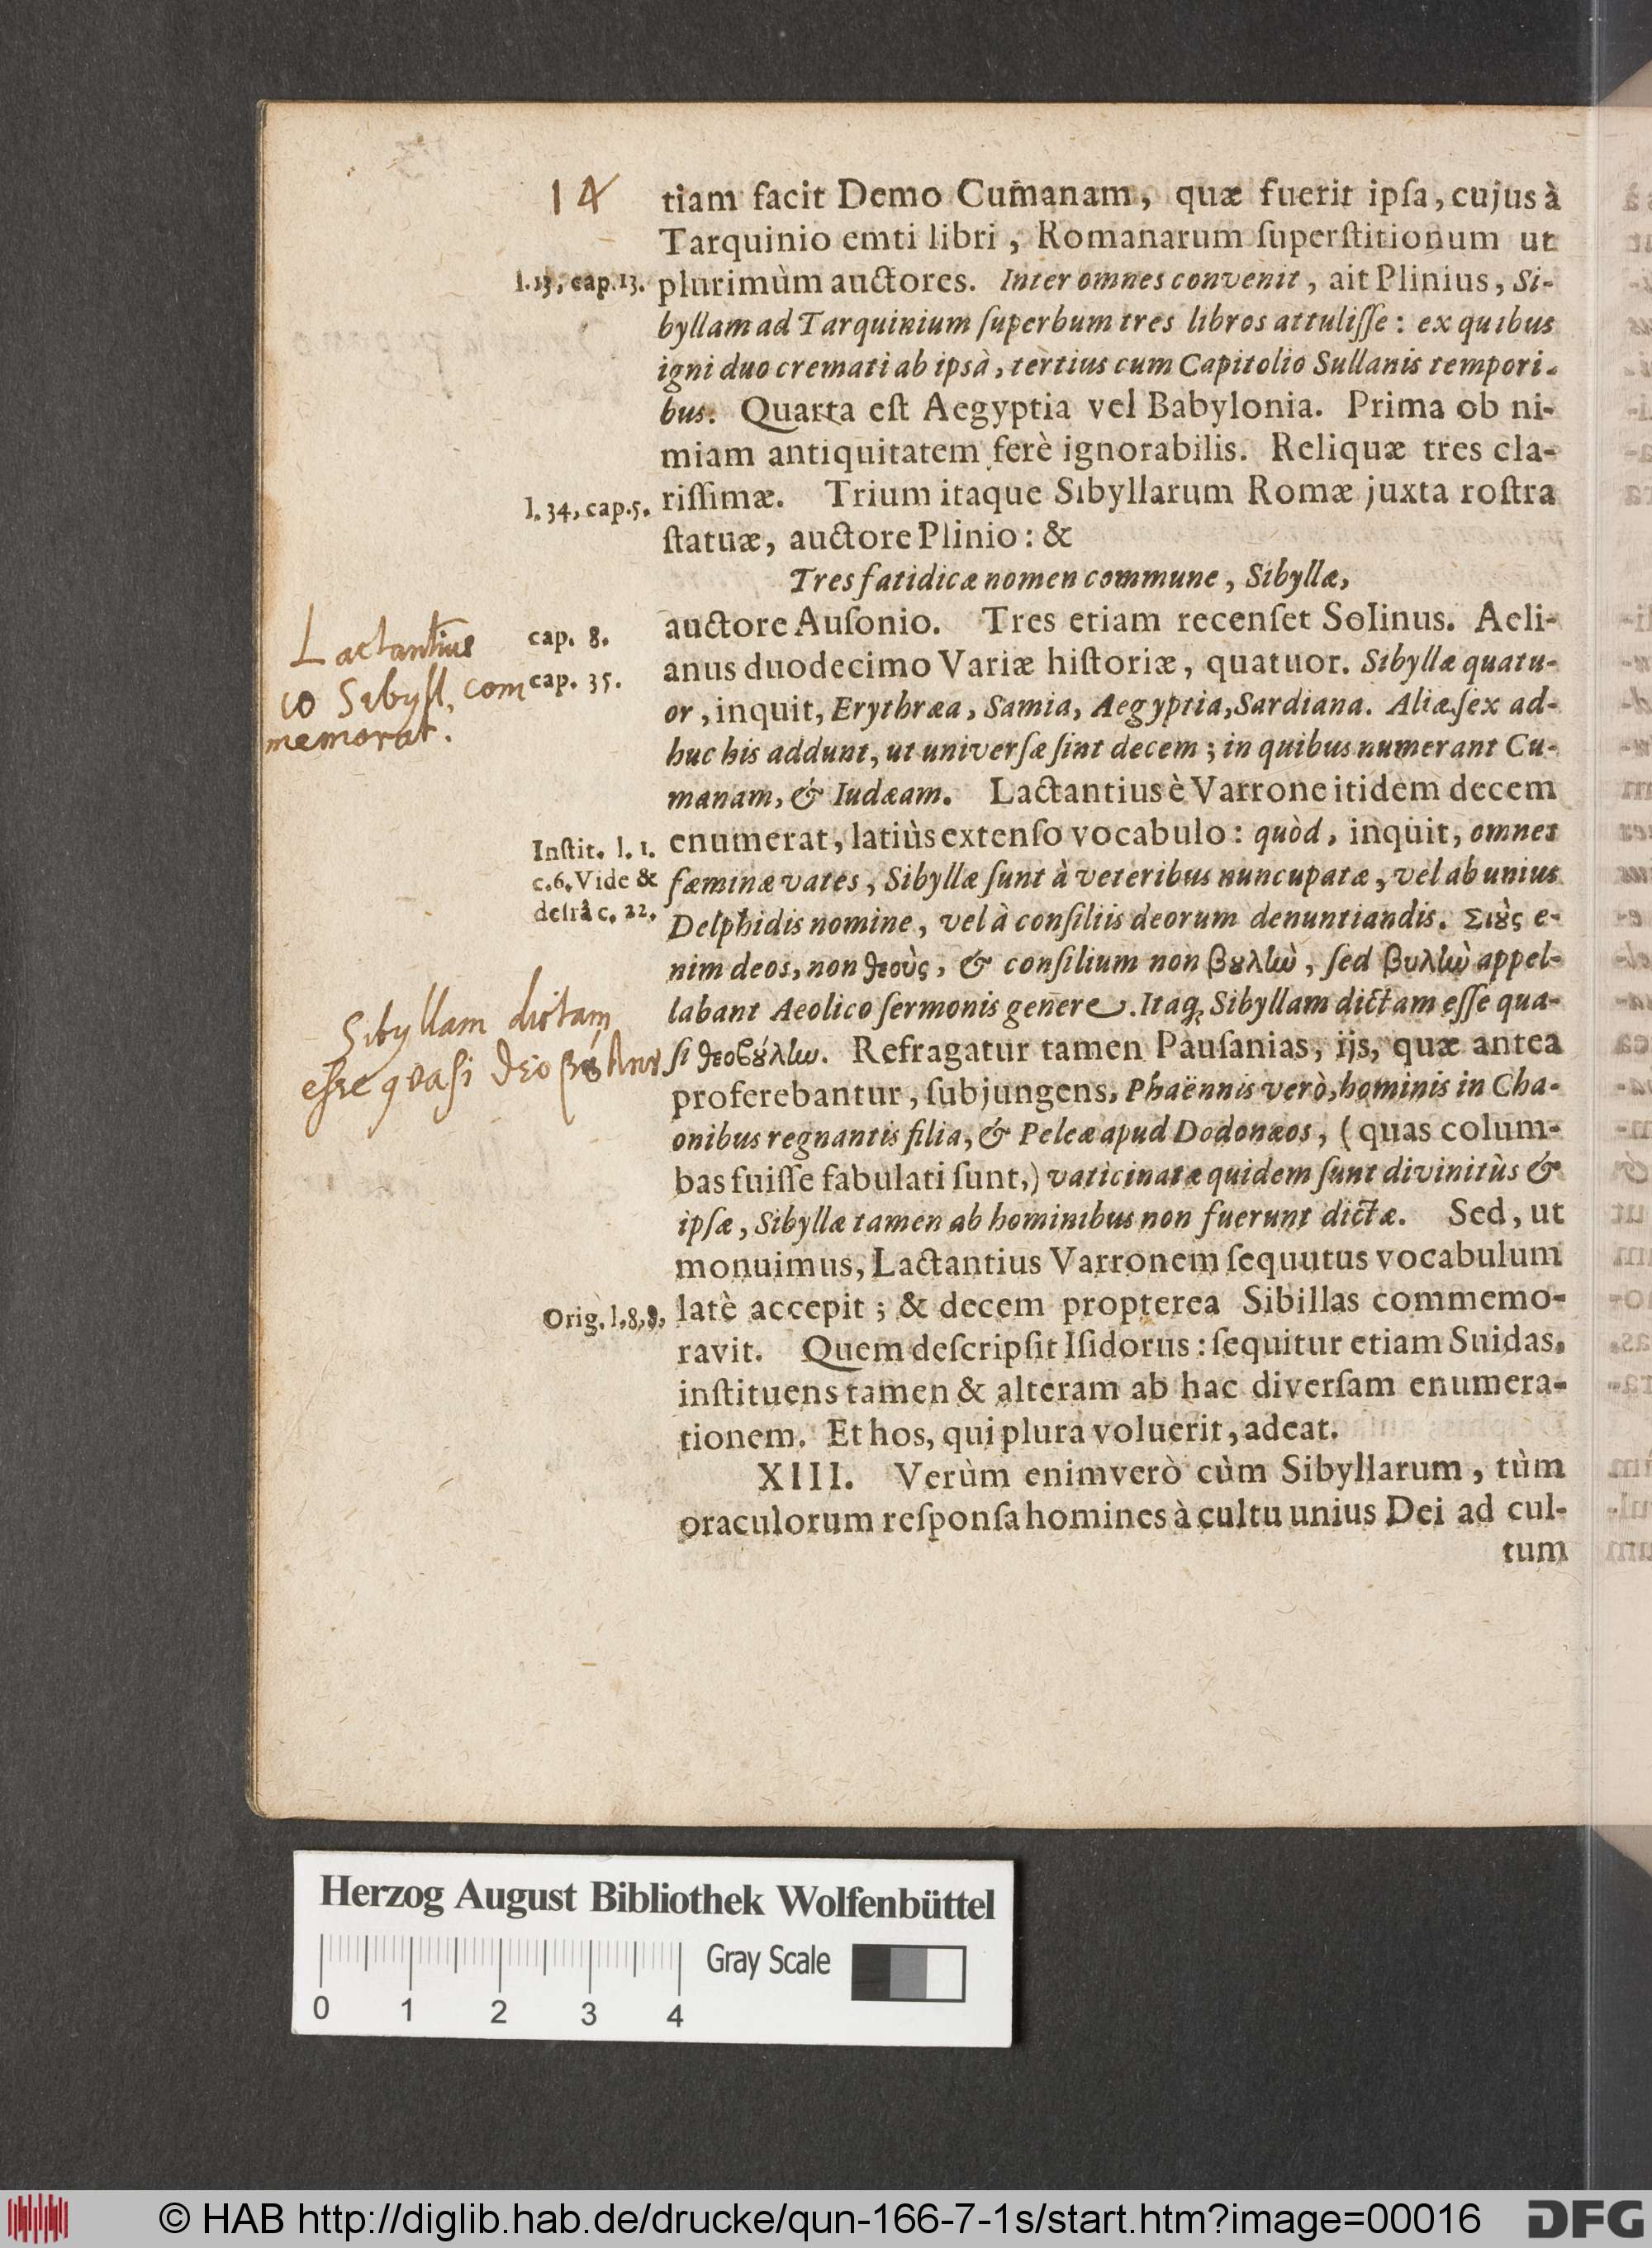 14
tiam facit Demo Cum̃anam, quæ fuerit ipſa, cujus à
Tarquinio emti libri, Romanarum ſuperſtitionum ut
l.13, cap.13.
plurimùm auctores. Inter omnes convenit, ait Plinius, Si-
byllam ad Tarquinium ſuperbum tres libros attuliſſe: ex quibus
igni duo cremati ab ipsà, tertius cum Capitolio Sullanis tempori-
bus. Quarta eſt Aegyptia vel Babylonia. Prima ob ni-
miam antiquitatem ferè ignorabilis. Reliquæ tres cla-
l. 34, cap.5.
riſſimæ. Trium itaque Sibyllarum Romæ juxta roſtra
ſtatuæ, auctore Plinio: &
Tres fatidicæ nomen commune, Sibyllæ,
cap. 8.
auctore Auſonio. Tres etiam recenſet Solinus. Aeli-
cap. 35.
anus duodecimo Variæ hiſtoriæ, quatuor. Sibyllæ quatu-
Lactantius
10 Sibyll, com
memorat.
or, inquit, Erythræa, Samia, Aegyptia, Sardiana. Aliæ ſex ad-
huc his addunt, ut univerſæ ſint decem; in quibus numerant Cu-
manam, & Iudæam. Lactantius è Varrone itidem decem
Inſtit. l. 1.
c.6. Vide &
de irâ c. 22.
enumerat, latiùs extenſo vocabulo: quòd, inquit, omnes
fæminæ vates, Sibyllæ ſunt à veteribus nuncupatæ, vel ab unius
Delphidis nomine, vel à conſiliis deorum denuntiandis. Σιȣ̀ς e-
nim deos, non θεοὺς, & conſilium non βȣλὼ, ſed βυλὼ appel-
labant Aeolico ſermonis genere. Itaq; Sibyllam dictam eſſe qua-
Sibyllam dictam
eſſe quaſi
ſi θεοβȣ́λω. Refragatur tamen Pauſanias, ijs, quæ antea
proferebantur, ſubjungens, Phaënnis verò, hominis in Cha-
onibus regnantis filia, & Peleæ apud Dodonæos, (quas colum-
bas fuiſſe fabulati ſunt,) vaticinatæ quidem ſunt divinitùs &
ipſæ, Sibyllæ tamen ab hominibus non fuerunt dictæ. Sed, ut
monuimus, Lactantius Varronem ſequutus vocabulum
Orig. l.8,8.
latè accepit; & decem propterea Sibillas commemo-
ravit. Quem deſcripſit Iſidorus: ſequitur etiam Suidas,
inſtituens tamen & alteram ab hac diverſam enumera-
tionem. Et hos, qui plura voluerit, adeat.
XIII. Verùm enimverò cùm Sibyllarum, tùm
oraculorum reſponſa homines à cultu unius Dei ad cul-
tum
Herzog August Bibliothek Wolfenbüttel
Gray Scale
0 1 2 3 4
© HAB http://diglib.hab.de/drucke/qun-166-7-1s/start.htm?image=00016
DFG